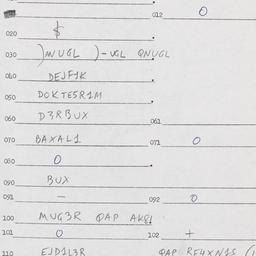 012 0
020 $
030 )ANUGL )-UGL QNUGL
040 DEJF1K
050 DOKTESR1M
060 D3RBUX 061
070 BAXAL1 071 0
080 0
090 BUX
091 - 092 0
100 MUG3R QAP AK81
101 0 102 +
110 EJD1L3R QAP RE4XN1S